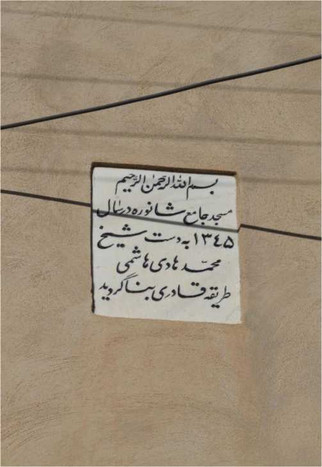 بسم الله الرحمن الرحیم
مسجد جامع شانوره در سال
۱۳۴۵ به دست شیخ
محمد هادی هاشمی
طریقه قادری بنا گردید